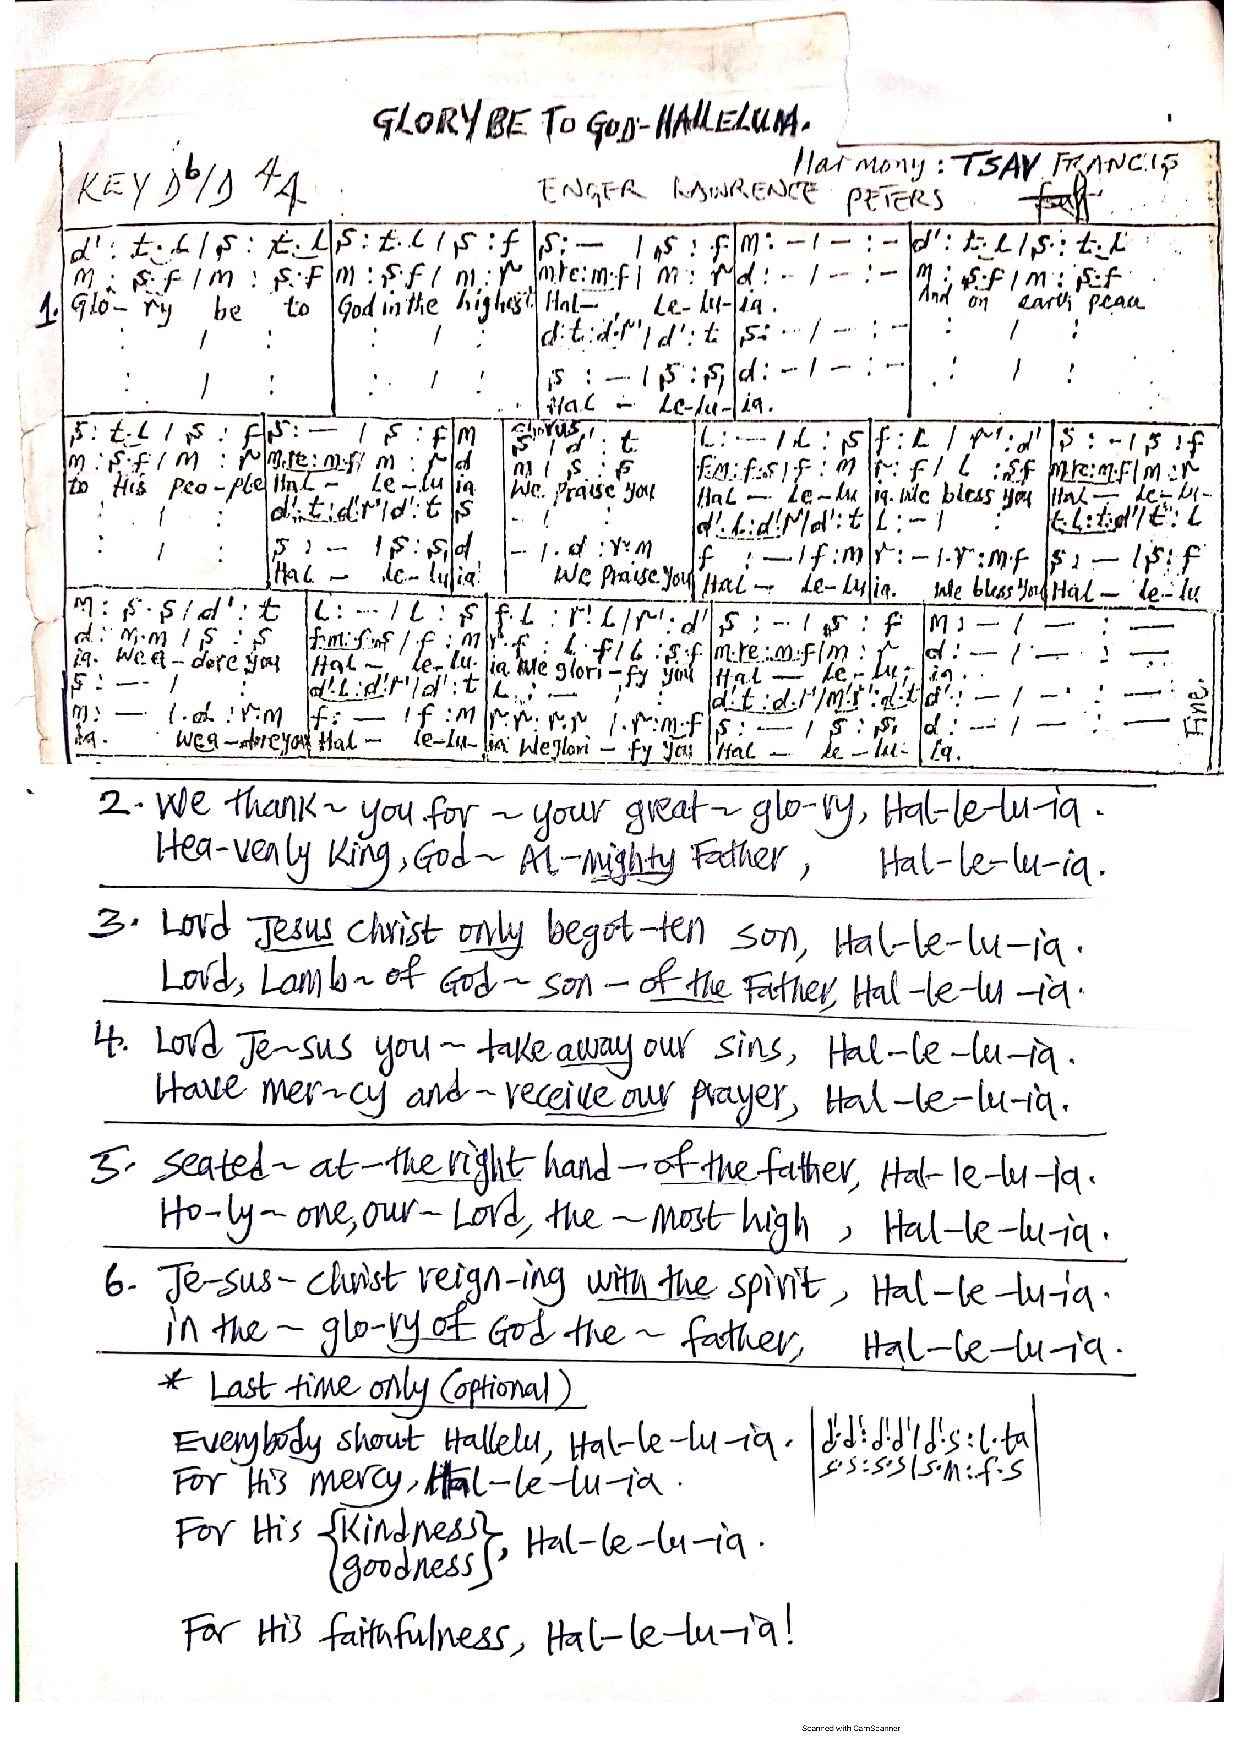 GLORY BE TO GOD-HALLELUIA.
Harmony: TSAV FRANCIS
KEY Db/D 4/4
ENGER LAWRENCE PETERS
d' : t.l / s : t.l | s : t.l / s : f | s : — / s : f | m : - / - : - | d' : t.l / s : t.l
m : s.f / m : s.f | m : s.f / m : r | m.re : m.f / m : r | d : - / - : - | m : s.f / m : s.f
1. Glo- ry be to God in the highest Hal- le-lu- ia. And on earth peace
d:t:d.r'/d':t | s : - / - : -
s : — / s : s, | d : - / - : -
Hal — le-lu- ia.
Chorus
s : t.l / s : f | s : — / s : f | m | s / d' : t | l : — / l : s | f : l / r' : d' | s : - / s : f
m : s.f / m : r | m.re : m.f / m : r | d | m / s : s | f.m : f.s / f : m | r : f / l : s.f | m.re : m.f / m : r
to His peo-ple Hal — le-lu ia We praise you Hal — le-lu ia. We bless you Hal — le-lu-
d'.t : d'.r' / d' : t | s | - / : | d'.l : d'.r' / d' : t | l : — / : | t.l : t.d' / t : l
s : — / s : s, | d | - / . d : r.m | f : — / f : m | r : - / . r : m.f | s : — / s : f
Hal — le-lu ia! We praise you Hal — le-lu ia. We bless you Hal — le-lu
m : s.s / d' : t | l : — / l : s | f.l : r'.l / r' : d' | s : - / s : f | m : — / — : —
d : m.m / s : s | f.m : f.s / f : m | r.f : l.f / l : s.f | m.re : m.f / m : r | d : — / — : —
ia. We a-dore you Hal — le-lu- ia We glori-fy you Hal — le-lu- ia.
s : — / : | d'.l : d'.r' / d' : t | l : — / : | d'.t : d'.r' / m'.r' : d'.t | d' : — / — : —
m : — / . d : r.m | f : — / f : m | r.r : r.r / . r : m.f | s : — / s : s, | d : — / — : —
ia. We a-dore you Hal — le-lu- ia We glori-fy you Hal — le-lu- ia.
Fine.
2. We thank~ you for ~ your great~ glo-ry, Hal-le-lu-ia.
Hea-venly King, God~ Al-mighty Father, Hal-le-lu-ia.
3. Lord Jesus christ only begot-ten son, Hal-le-lu-ia.
Lord, Lamb~ of God~ son - of the Father, Hal-le-lu-ia.
4. Lord Je-sus you ~ take away our sins, Hal-le-lu-ia.
Have mer~cy and ~ receive our prayer, Hal-le-lu-ia.
5. seated~ at-the right hand - of the father, Hal-le-lu-ia.
Ho-ly~ one, our~ Lord, the ~ most high, Hal-le-lu-ia.
6. Je-sus- christ reign-ing with the spirit, Hal-le-lu-ia.
in the ~ glo-ry of God the ~ father, Hal-le-lu-ia.
* Last time only (optional)
Everybody shout Hallelu, Hal-le-lu-ia. | d'.d' : d'.d' / d'.s : l.ta |
For His mercy, Hal-le-lu-ia. s.s : s.s / s.m : f.s
For His {kindness}, Hal-le-lu-ia.
{goodness}
For His faithfulness, Hal-le-lu-ia!
Scanned with CamScanner